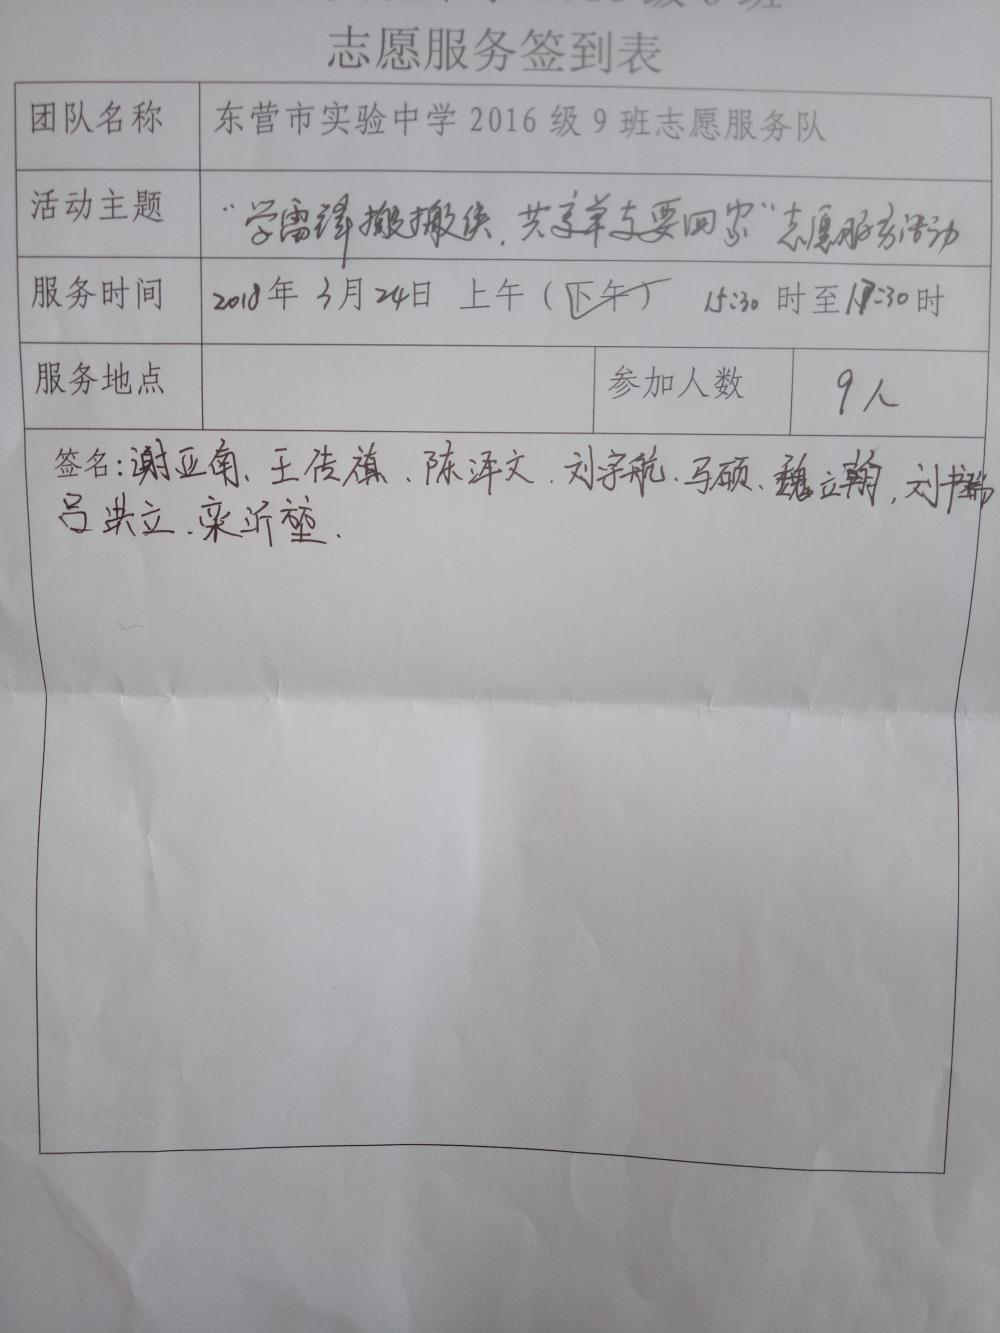 2016级9班
志愿服务签到表
团队名称 东营市实验中学2016级9班志愿服务队
活动主题 “学雷锋搬搬侠,共享单车要回家”志愿服务活动
服务时间 2018年3月24日 上午(下午) 15:30时至17:30时
服务地点 参加人数 9人
签名:谢亚南、王传旗、陈泽文、刘宇航、马硕、魏立翰,刘书瑞
吕洪立、栾沂堃.